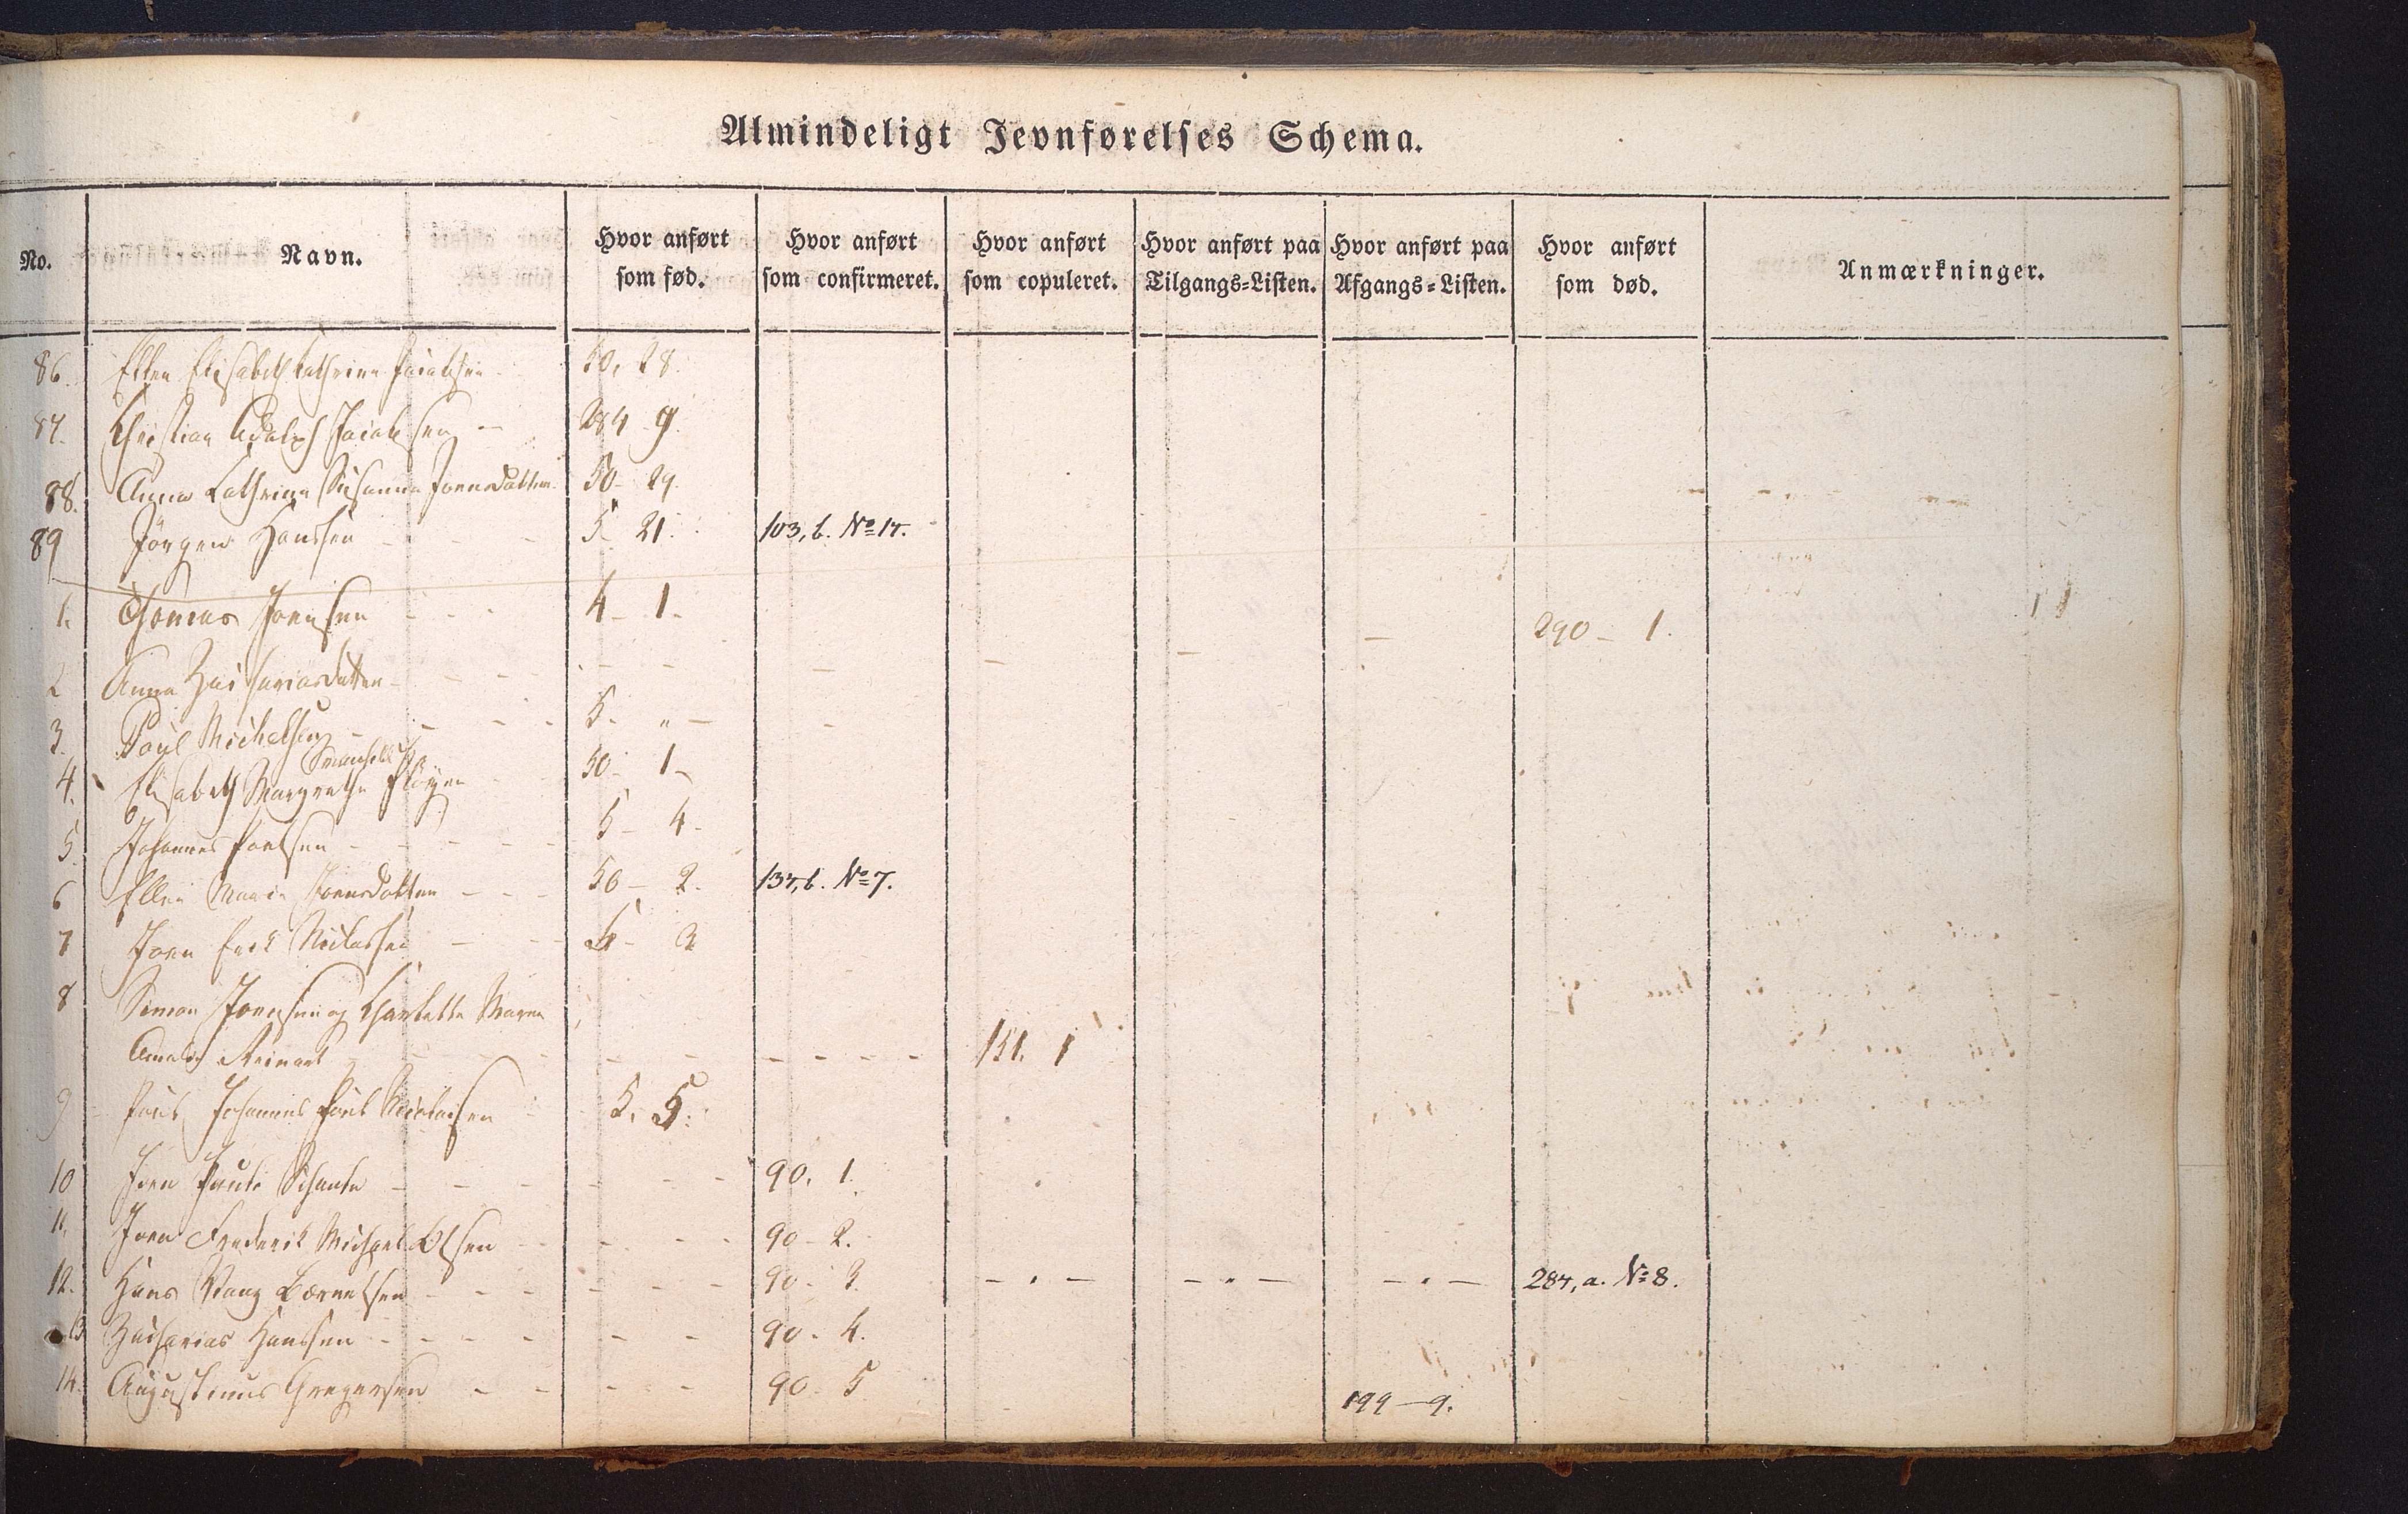 Almindeligt Jevnførelses Schema.
No. Navn. Hvor anført som fød. Hvor anført som confirmeret. Hvor anført som copuleret. Hvor anført paa Tilgangs-Listen. Hvor anført paa Afgangs-Listen. Hvor anført som død. Anmærkninger.
86. Ellen Elisabeth Cathrine Jacobsen 50, 28.
87. Christian Adolph Jacobsen 284 9.
88. Anna Cathrine Susanna Joensdatter 50- 29.
89 Jörgen Hansen 5- 21. 103, b. No 14.
1. Thomas Joensen 4- 1- 290- 1.
2 Anna Zachariasdatter
3. Poul Michelsen 5. "
4. Elisabeth Margrethe 50- 1-
5. Johannes Poulsen 5- 4-
6 Ellen Maria Joensdatter 50- 2. 137, b. No 7.
7 Joen Erik Niclassen 5- 3
8 Simon Joensen og Charlotte Maren
Amalia Reinert 151. 1
9 Poul Johannes Poul Nicolaisen 5. 5.
10 Joen Pauli 90. 1.
11. Joen Frederik Michael Olsen 90- 2.
12. Hans 90- 3. 284, a. No 8.
13 Zacharias Hansen 90- 4.
14. Augustinus Gregersen 90- 5 199-9.